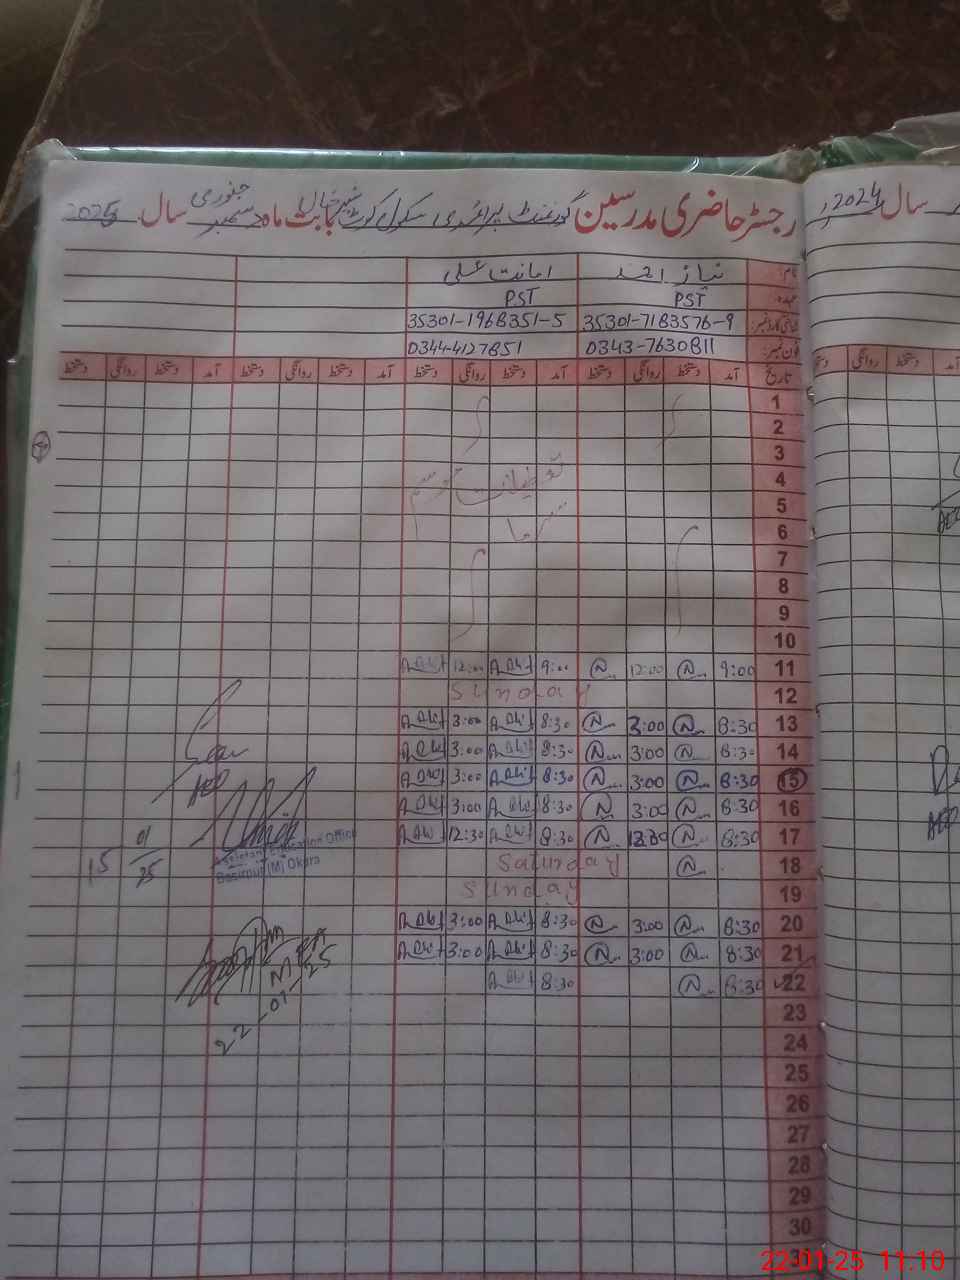 رجسٹر حاضری مدرسین گورنمنٹ پرائمری سکول کوٹ شیر خان بابت ماہ دسمبر جنوری سال 2025
سال 2024
نام: نیاز احمد امانت علی
عہدہ: PST PST
شناختی کارڈ نمبر: 35301-7183576-9 35301-1968351-5
فون نمبر: 0343-7630811 0344-4127851
تاریخ آمد دستخط روانگی دستخط آمد دستخط روانگی دستخط آمد دستخط روانگی دستخط آمد دستخط روانگی دستخط
1
2
3
4 تعطیلات موسم
5 سرما
6
7
8
9
10
11 9:00 12:00 9:00 12:00
12 Sunday
13 8:30 3:00 8:30 3:00
14 8:30 3:00 8:30 3:00
15 8:30 3:00 8:30 3:00
16 8:30 3:00 8:30 3:00
17 8:30 12:30 8:30 12:30
18 Saturday
19 Sunday
20 8:30 3:00 8:30 3:00
21 8:30 3:00 8:30 3:00
22 8:30 8:30
23
24
25
26
27
28
29
30
AEO
15 01/25
Assistant Education Officer
Basirpur (M) Okara
MEA
22-01-25
22-01-25 11:10